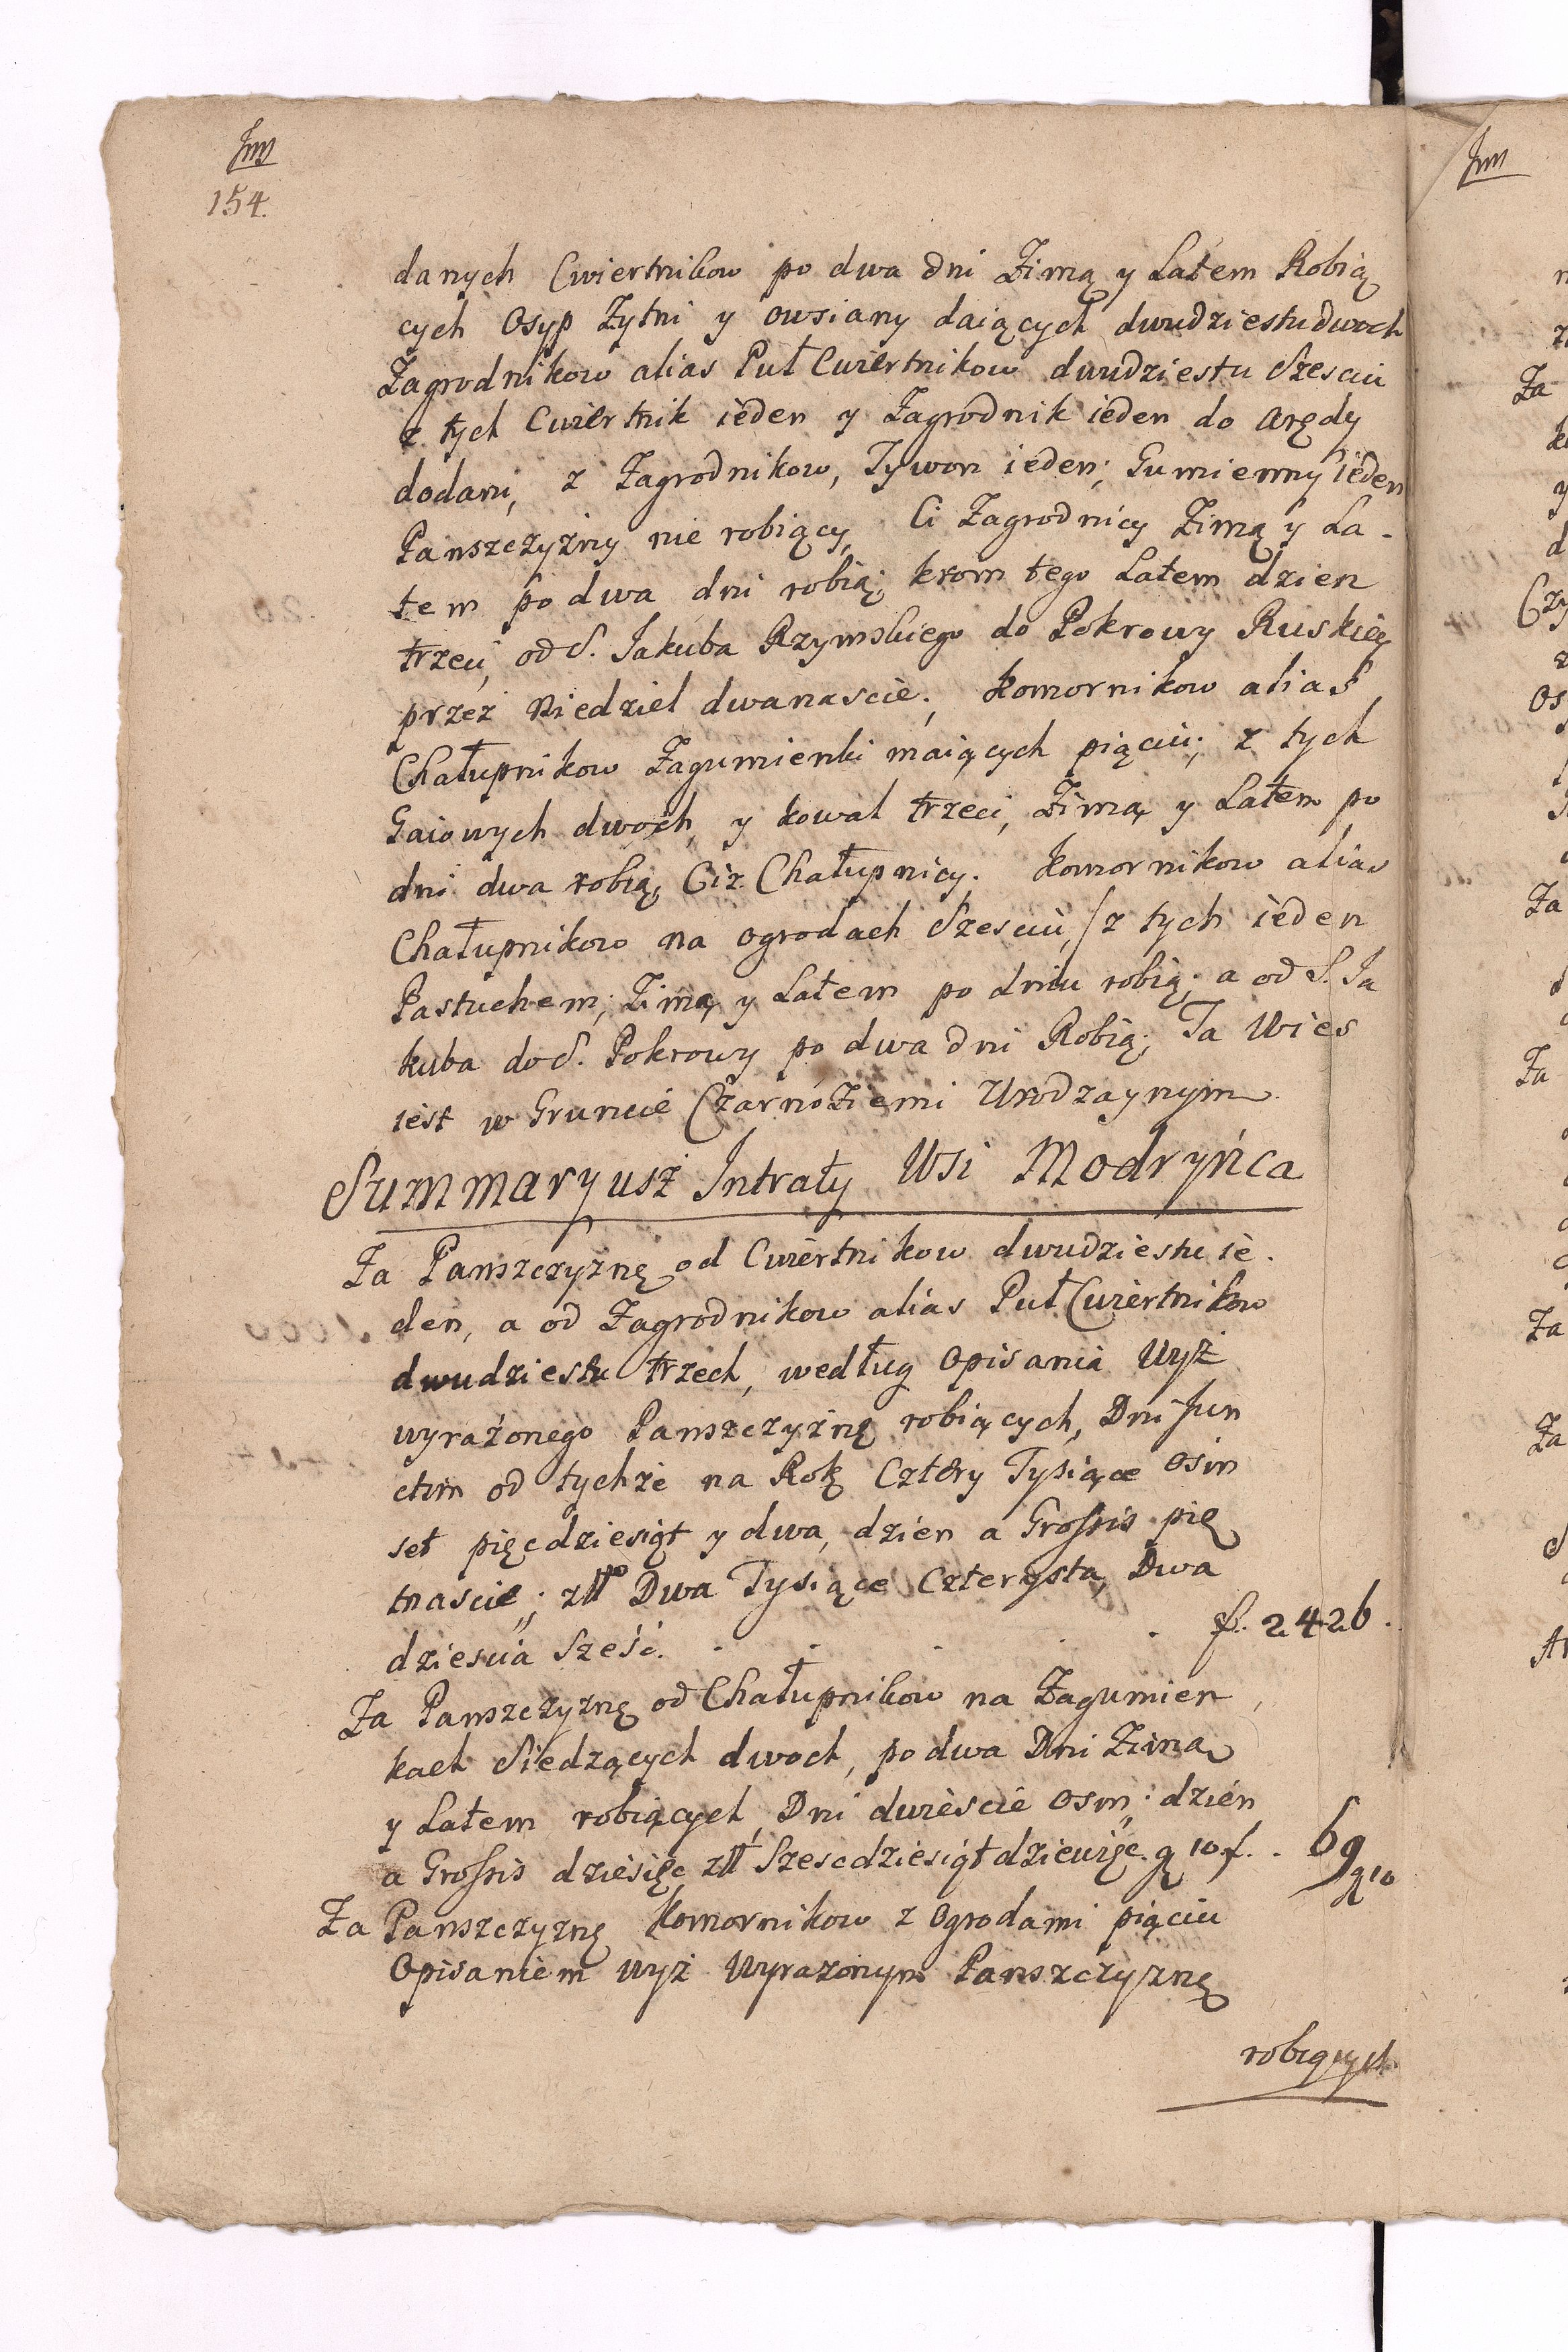 154.
danych Cwiertnikow po dwa dni Zimą y Latem Robią
cych Osyp Zytni y owsiany daiących dwudziestu dwoch
Zagrodnikow alias Puł Cwiertnikow dwudziestu Szesciu
z tych Cwiertnik ieden y Zagrodnik ieden do arędy
dodani, z Zagrodnikow, Tywon ieden; Gumienny ieden
Panszczyzny nie robiący, Ci Zagrodnicy Zimą y La-
tem po dwa dni robią; krom tego Latem dzien
trzeci, od S. Jakuba Rzymskiego do Pokrowy Ruskiey
przez Niedziel dwanascie; Komornikow alias
Chałupnikow Zagumienki maiących piąciu; z tych
Gaiowych dwoch, y kowal trzeci, Zimą y Latem po
dni dwa robią, Ciż Chałupnicy. Komornikow alias
Chałupnikow na ogrodach Szesciu, z tych ieden
Pastuchem; Zimą y Latem po dniu robią; a od S. Ja
kuba do S. Pokrowy po dwa dni Robią; Ta Wies
iest w Gruncie Czarnoziemi Urodzaynym.
Summaryusz Intraty Wsi Modryńca
Za Panszczyznę od Cwiertnikow dwudziestu ie.
den, a od Zagrodnikow alias Puł Cwiertnikow
dwudziestu trzech, według Opisania Wyż
wyrażonego Panszczyznę robiących, Dni Jun
ctim od tychże na Rok Cztery Tysiące Osim
set pięcdziesiąt y dwa, dzien a Grossis pię
tnascie; zł Dwa Tysiące Czterysta, Dwa
dziescia Szesć. . . . . . f. 2426.
Za Panszczyznę od Chałupnikow na Zagumien
kach Siedzących dwoch, po dwa Dni Zimą
y Latem robiących, Dni dwieście Osm; dzien
a Grossis dziesięc zł Szescdziesiąt dziewięc. g 10 f. . 69 g 10
Za Panszczyznę Komornikow z Ogrodami piąciu
Opisaniem wyż Wyrazonym Panszczyznę
robiących